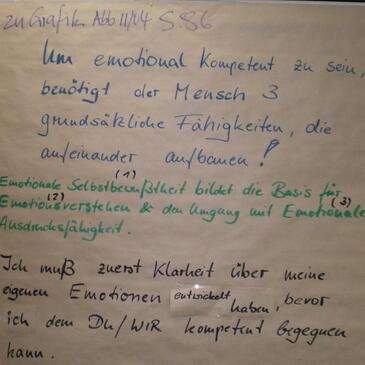 zu Grafik Abb 11/04 S. 86
Um emotional kompetent zu sein,
benötigt der Mensch 3
grundsätzliche Fähigkeiten, die
aufeinander aufbauen!
(1)
Emotionale Selbstbewußtheit bildet die Basis für
(2) (3)
Emotionsverstehen & den Umgang mit Emotionale
Ausdrucksfähigkeit.
Ich muß zuerst Klarheit über meine
eigenen Emotionen entwickelt haben, bevor
ich dem DU/WIR kompetent begegnen
kann.